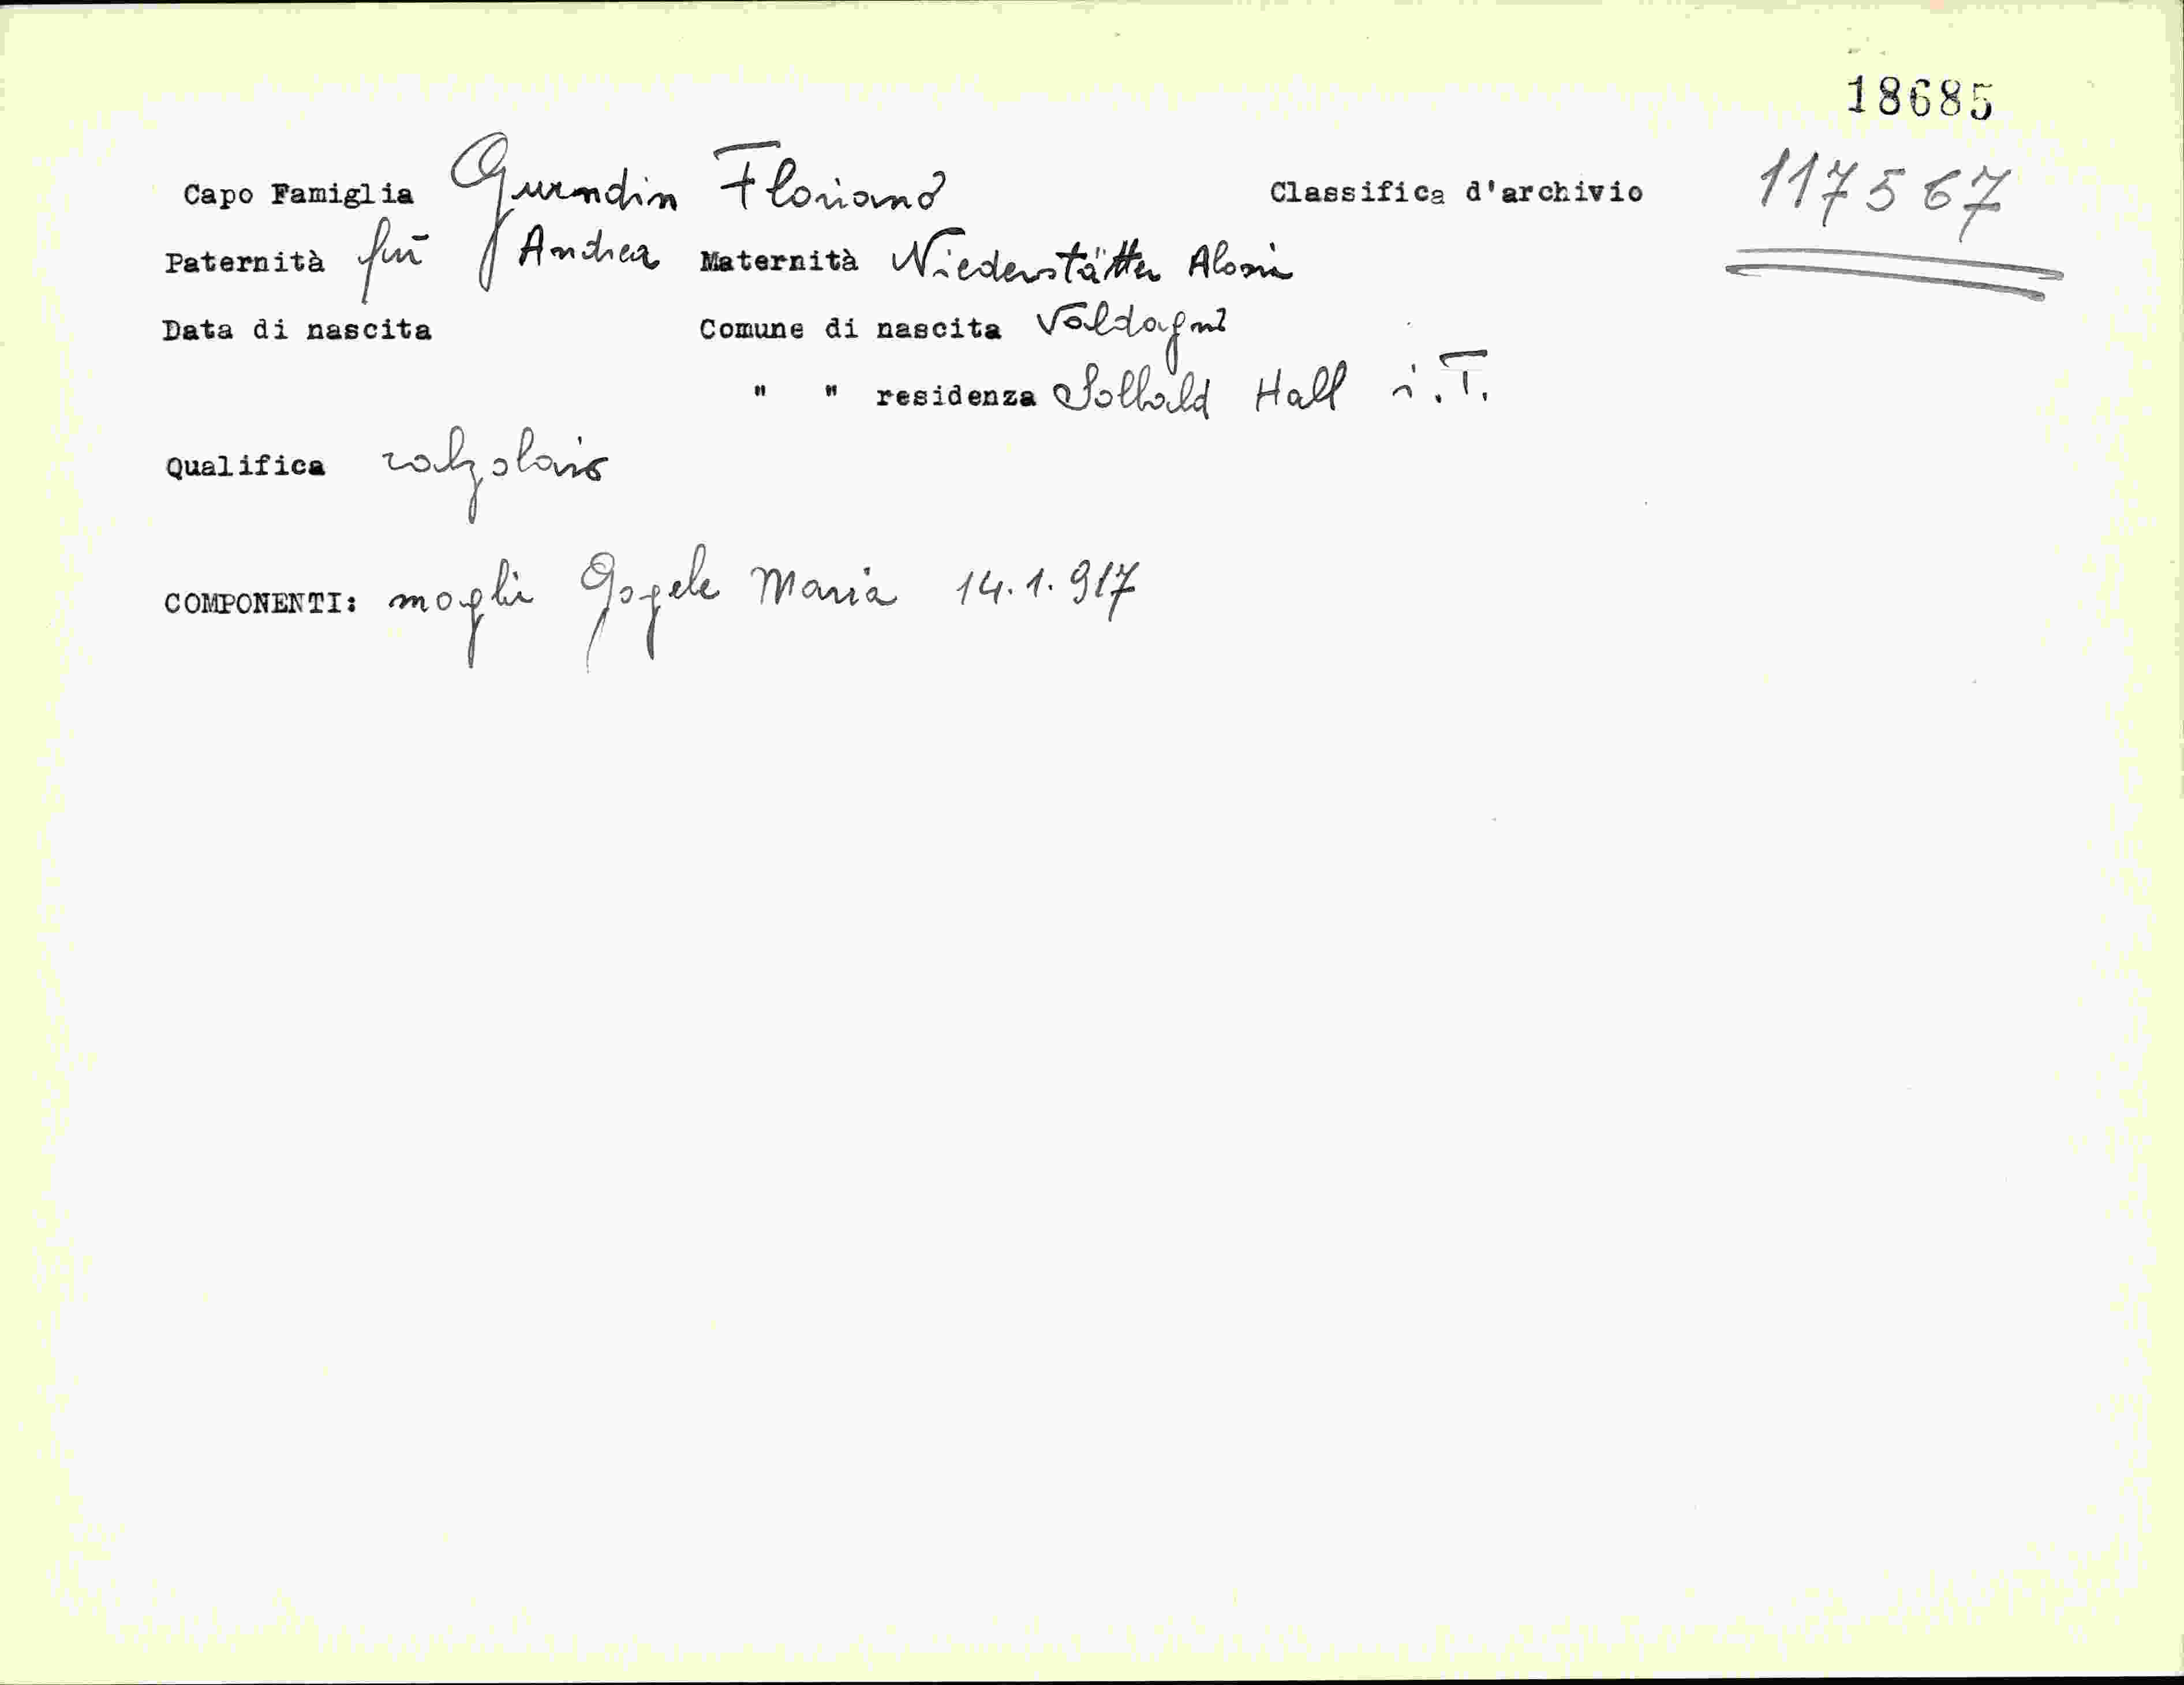 18685
Capo Famiglia Gurndin Floriano Classifica d'archivio 117567
Paternità fu Andrea Maternità Niederstätter Aloisia
Data di nascita Comune di nascita Valdagno
" " residenza Solbad Hall i.T.
Qualifica calzolaio
COMPONENTI: moglie Gögele Maria 14.1.917